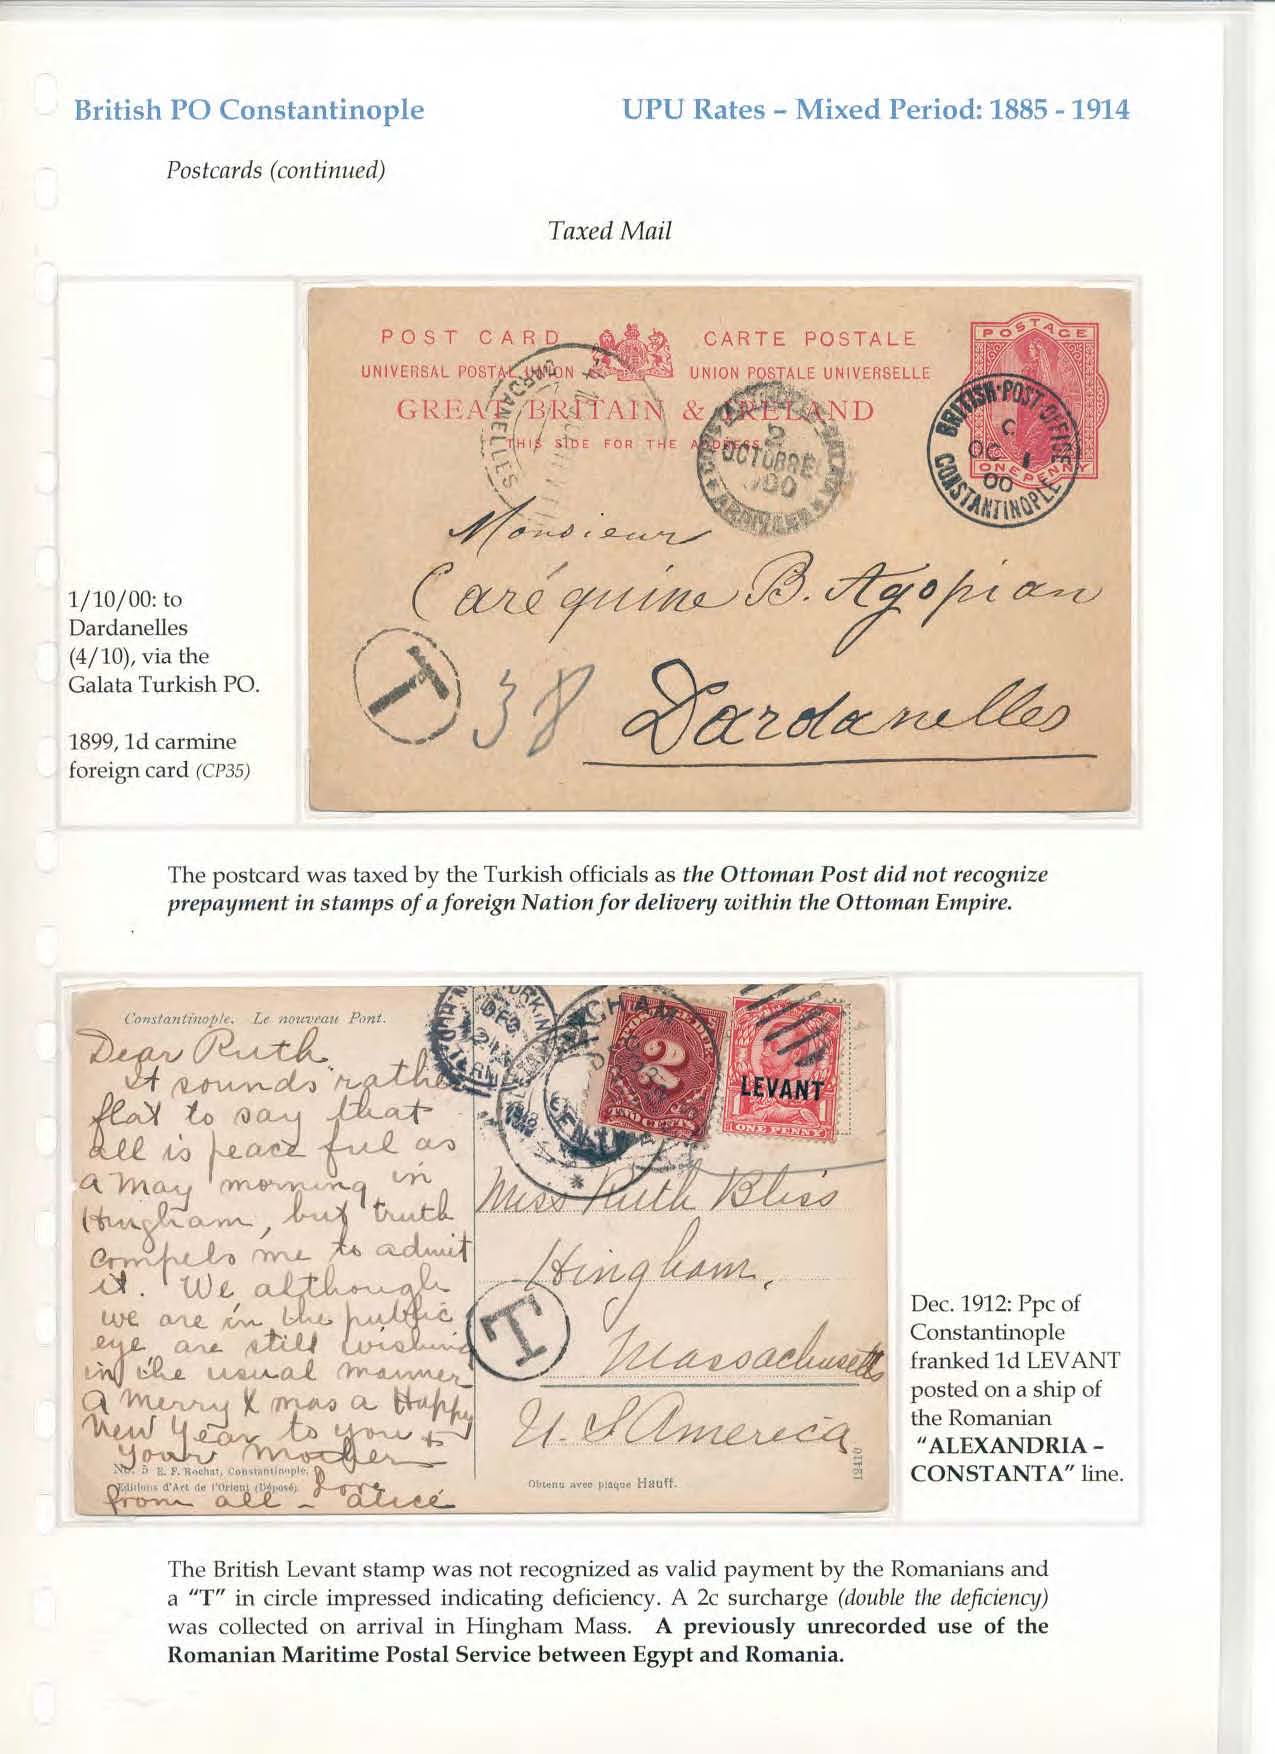 British PO Constantinople
UPU Rates – Mixed Period: 1885 - 1914
Postcards (continued)
Taxed Mail
POST CARD
CARTE POSTALE
UNIVERSAL POSTAL UNION
UNION POSTALE UNIVERSELLE
GREAT BRITAIN & IRELAND
THIS SIDE FOR THE ADDRESS
POSTAGE
ONE PENNY
BRITISH·POST·OFFICE
C
OC 1
00
CONSTANTINOPLE
DARDANELLES
2
OCTOBRE
Monsieur
Caréquine B. Agopian
T
38
Dardanelles
1/10/00: to
Dardanelles
(4/10), via the
Galata Turkish PO.
1899, 1d carmine
foreign card (CP35)
The postcard was taxed by the Turkish officials as the Ottoman Post did not recognize
prepayment in stamps of a foreign Nation for delivery within the Ottoman Empire.
Constantinople. Le nouveau Pont.
Dear Ruth
It sounds rather
flat to say that
all is peaceful as
a May morning in
Hingham, but truth
compels me to admit
it. We although
we are in the public
eye are still wishing
in the usual manner
a Merry Xmas a Happy
New Year to you +
your Mother
Love
from all – Alice
No. 5 E. F. Rochat, Constantinople.
Editions d'Art de l'Orient (Déposé)
DEC
1912
HINGHAM
2
TWO CENTS
LEVANT
ONE PENNY
Miss Ruth Bliss
Hingham,
T
Massachusetts
U. S America
Obtenu avec plaque Hauff.
12410
Dec. 1912: Ppc of
Constantinople
franked 1d LEVANT
posted on a ship of
the Romanian
"ALEXANDRIA –
CONSTANTA" line.
The British Levant stamp was not recognized as valid payment by the Romanians and
a "T" in circle impressed indicating deficiency. A 2c surcharge (double the deficiency)
was collected on arrival in Hingham Mass. A previously unrecorded use of the
Romanian Maritime Postal Service between Egypt and Romania.